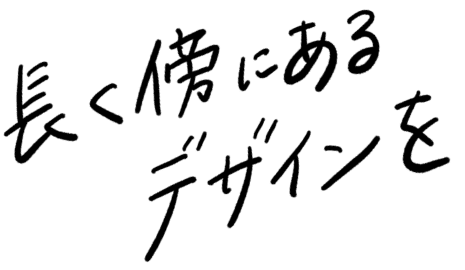 長く傍にある
デザインを